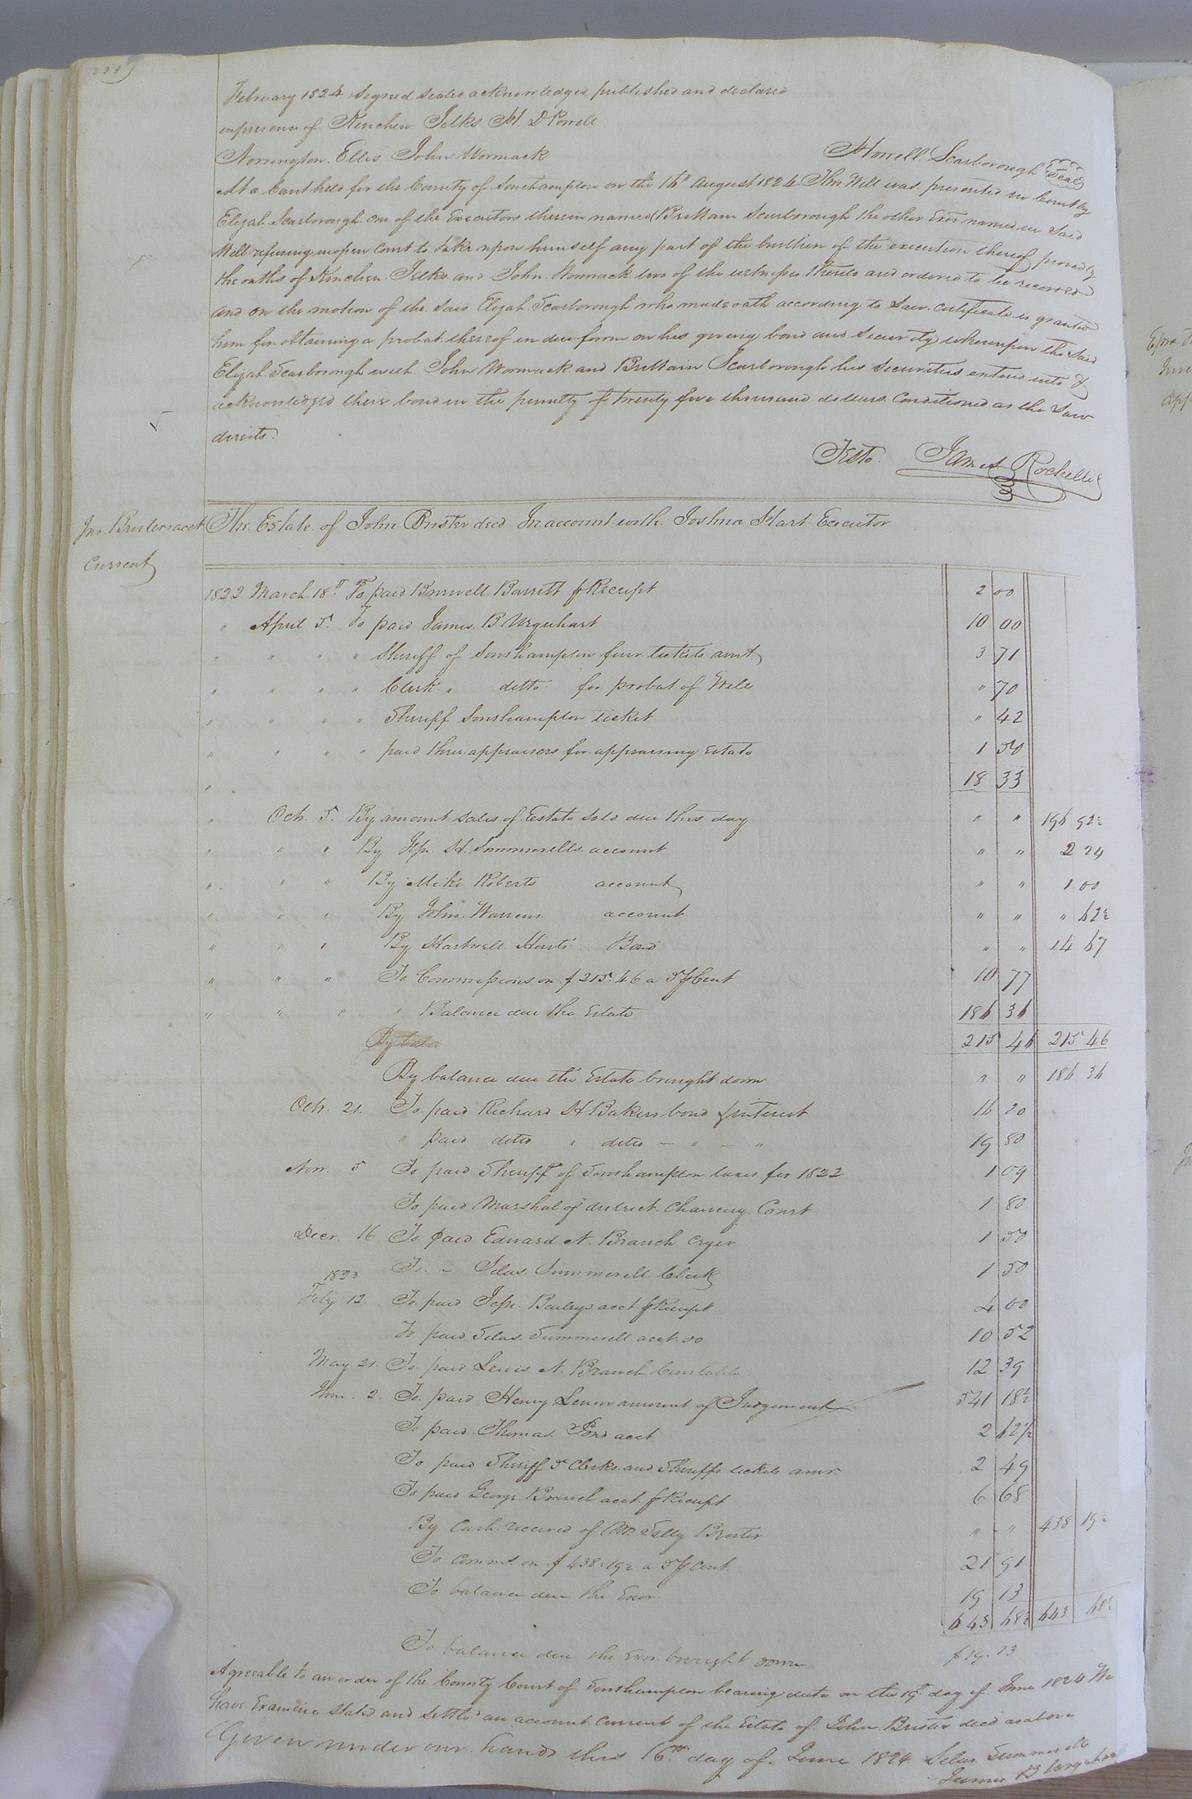 February 1824 Signed sealed acknowledged published and declared
in presence of Kinchen Jelks H. D Powell
Norrington Ellis John Wormack
Howell Scarborough Seal
At a Court held for the County of Southampton on the 16th August 1824 This Will was presented in Court by
Elijah Scarborough one of the Executors therein named (Brittain Scarborough the other Exor named in Said
Will refusing in open Court to take upon himself any part of the burthen of the execution thereof proved by
the oaths of Kinchen Jelks and John Womack two of the witnesses thereto and ordered to be recorded
and on the motion of the said Elijah Scarborough who made oath according to Law, certificate is granted
him for obtaining a probat thereof in due form on his giving bond and Security whereupon the Said
Elijah Scarborough with John Wormack and Brittain Scarborough his Securities entered into &
acknowledged their bond in the penalty of twenty five thousand dollars Conditioned as the Law
directs.
Teste. James Rochelle
Jno. Brister acct
Current
The Estate of John Brister decd In account with Joshua Hart Executor
1822 March 18th To paid Burwell Barrett p Receipt 2 00
" April 5. To paid James B Urquhart 10 00
" " " " Sheriff of Southampton four tickets amt 3 71
" " " " Clerk " ditto for probat of Will " 70
" " " " Sheriff Southampton ticket " 42
" " " " paid three appraisers for appraising Estate 1 50
" 18 33
" Oct. 5. By amount sales of Estate sold due this day " " 196 92½
" " " By H. Summerells account " " 2 24
" " " By Mike Roberts account " " 1 00
" " " By John Warrens account " " " 62½
" " " By Hartwell Harts Bond " " 14 67
" " " To Commissions on $215.46 a 5 p Cent 10 77
" " " " Balance due the Estate 186 36
215 46 215 46
By balance due the Estate brought down " " 186 36
Oct. 21. To paid Richard H Bakers bond & Interest 16 20
" paid ditto " ditto — " — " 19 80
Nov. 5 To paid Sheriff of Southampton taxes for 1822 1 09
To paid Marshal of district Chancery Court 1 80
Decr. 16 To paid Edward A. Branch Cryer 1 50
To " Silas Summerell Clerk 1 50
1823
Feby 12. To paid Jesse Baileys acct p Receipt 4 00
To paid Silas Summerell acct do 10 52
May 21. To paid Lewis A. Branch Constable 12 39
2. To paid Henry amount of Judgement 541 18½
To paid Thomas Pond acct 2 62½
To paid Sheriff & Clerks and Sheriffs tickets amt. 2 49
To paid George Branch acct p Receipt 6 68
By Cash received of Mrs Sally Brister " " 438 19½
To commd. on $438.19½ a 5 p Cent. 21 91
To balance due the Exor 19 13
643 68½ 643 68½
To balance due the Exor brought down $19.13
Agreeable to an order of the County Court of Southampton bearing date on the 19th day of June 1824 We
have Examined Stated and Settled an account current of the Estate of John Brister decd as above
Given under our hands this 16th day of June 1824 Silas Summerell
James B Urquhart